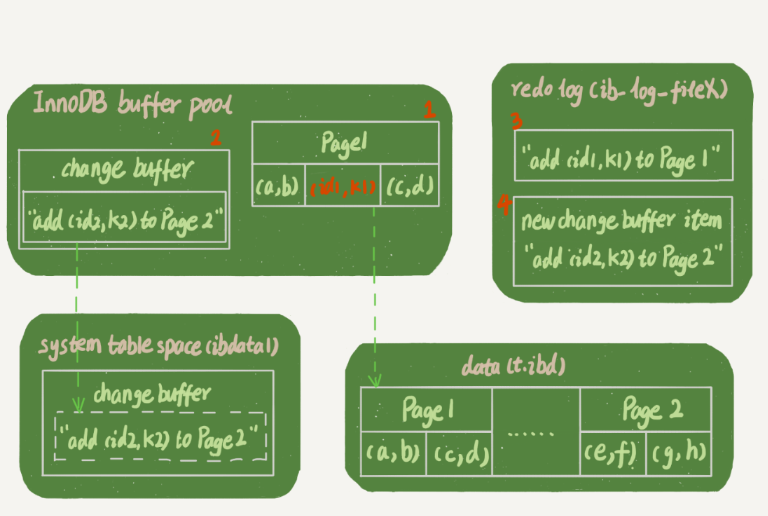 InnoDB buffer pool
1
2
Page1
change buffer
(a,b) (id1,k1) (c,d)
"add (id2,k2) to Page 2"
redo log (ib_log_fileX)
3
"add (id1,k1) to Page 1"
4
new change buffer item
"add (id2,k2) to Page 2"
system table space (ibdata1)
change buffer
"add (id2,k2) to Page 2"
data (t.ibd)
Page 1 ...... Page 2
(a,b) (c,d) (e,f) (g,h)